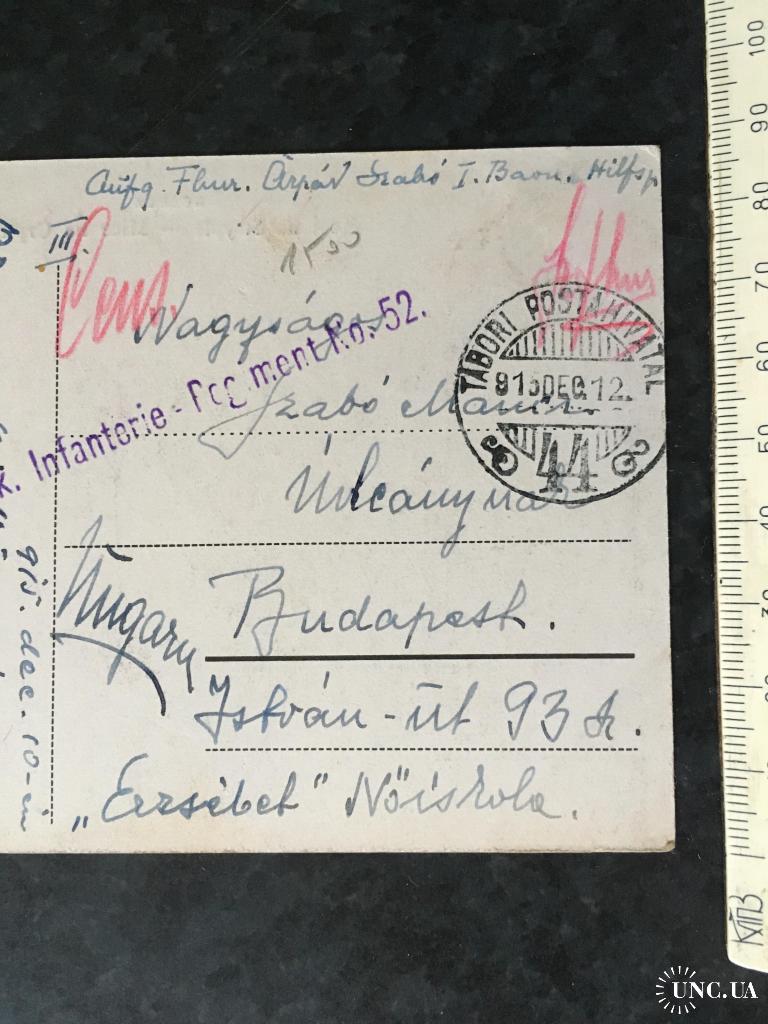 Aufg. Fhnr. Árpád Szabó I. Baon. Hilfsp
III.
Cens.
1500
Nagyságos
k. Infanterie - Regiment No. 52.
TÁBORI POSTAHIVATAL
915 DEC. 12.
44
Szabó
Budapest.
Ungarn
István-út 93 sz.
„Erzsébet" Nőiskola.
915. dec. 10-én
100
90
80
70
60
50
40
30
UNC.UA